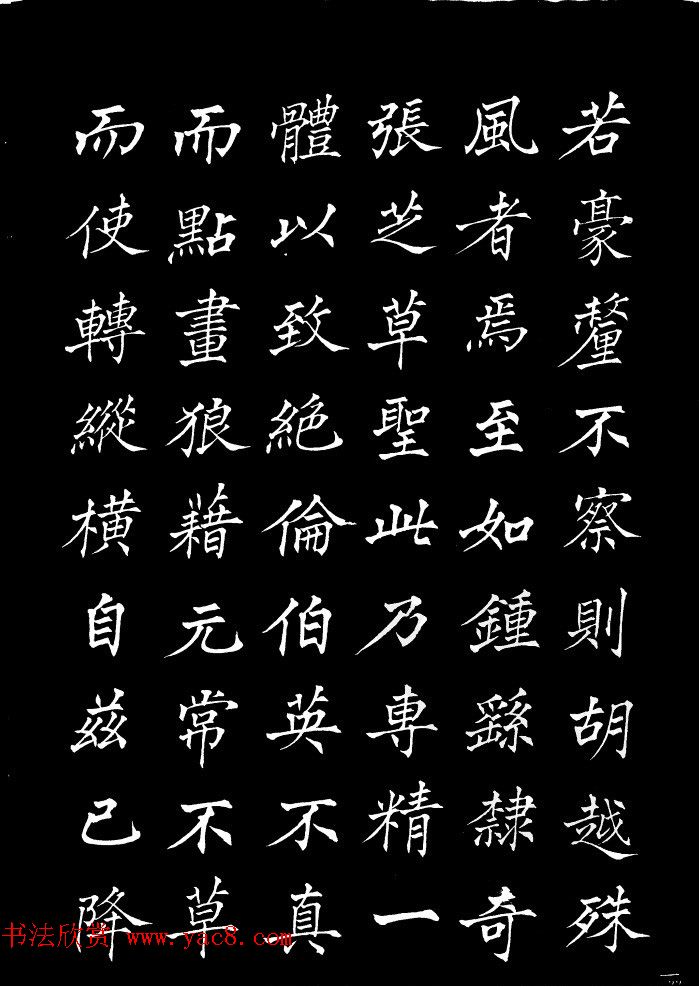 若豪釐不察則胡越殊
風者焉至如鍾繇隸奇
張芝草聖此乃專精一
體以致絕倫伯英不真
而點畫狼藉元常不草
而使轉縱橫自茲已降
书法欣赏 www.yac8.com